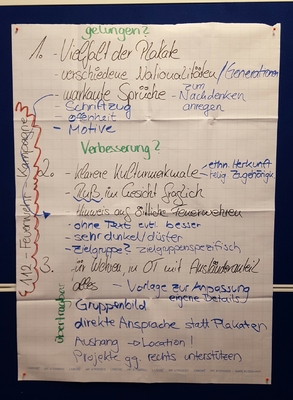 gelungen?
1. - Vielfalt der Plakate
- verschiedene Nationalitäten / Generationen
- markante Sprüche - zum Nachdenken anregen
- Schriftzug
- offenheit
- Motive
Verbesserung?
2. - klarere Kulturmerkmale - ethn. Herkunft
- Ruß im Gesicht fraglich
- Hinweis auf örtliche Feuerwehren
- ohne Text evtl. besser
- sehr dunkel/düster
- Zielgruppe? zielgruppenspezifisch
3. in Wehren, in OT mit Ausländeranteil
alles - Vorlage zur Anpassung
eigene Details
Gruppenbild
direkte Ansprache statt Plakaten
Aushang → Location!
Projekte gg. rechts unterstützen
112 - Feuerwehr - Kampagne
übertragbar